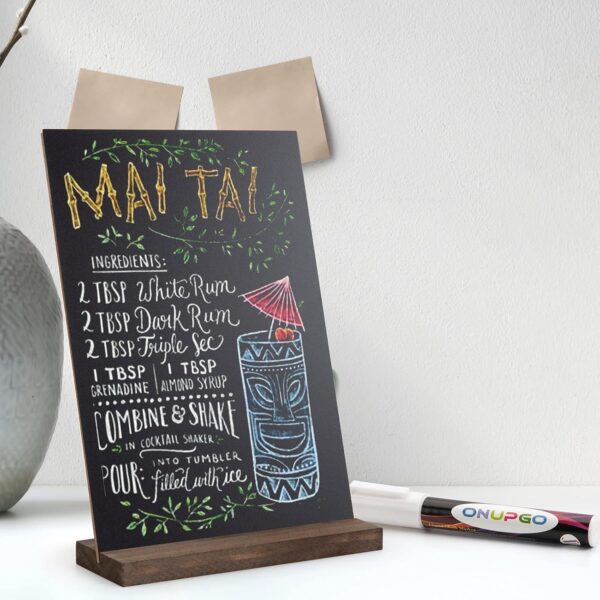 MAI TAI
INGREDIENTS:
2 TBSP White Rum
2 TBSP Dark Rum
2 TBSP Triple Sec
1 TBSP GRENADINE | 1 TBSP ALMOND SYRUP
COMBINE & SHAKE
IN COCKTAIL SHAKER
POUR: INTO TUMBLER
filled with ice
ONUPGO